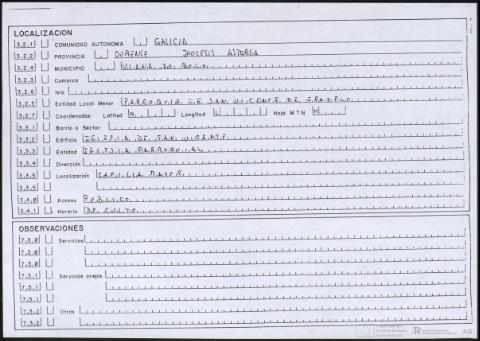 LOCALIZACION
3.2.1 COMUNIDAD AUTONOMA GALICIA
3.2.2 PROVINCIA OURENSE DIOCESIS ASTORGA
3.2.4 MUNICIPIO VIANA DO BOLO
3.2.3 Comarca
3.2.6 Isla
3.2.5 Entidad Local Menor PARROQUIA DE SAN VICENTE DE
3.2.7 Coordenadas: Latitud N Longitud Hoja M.T.N H
3.3.1 Barrio o Sector
3.3.2 Edificio IGLESIA DE SAN VICENTE
3.3.3 Entidad IGLESIA PARROQUIAL
3.3.4 Dirección
3.3.5 Localización CAPILLA MAYOR
3.3.5
3.4.0 Acceso PUBLICO
3.4.1 Horario DE CULTO
OBSERVACIONES
7.3.0 Servicios
7.3.0
7.3.0
7.3.1 Servicios anejos
7.3.1
7.3.1
7.3.2 Otros
7.3.2